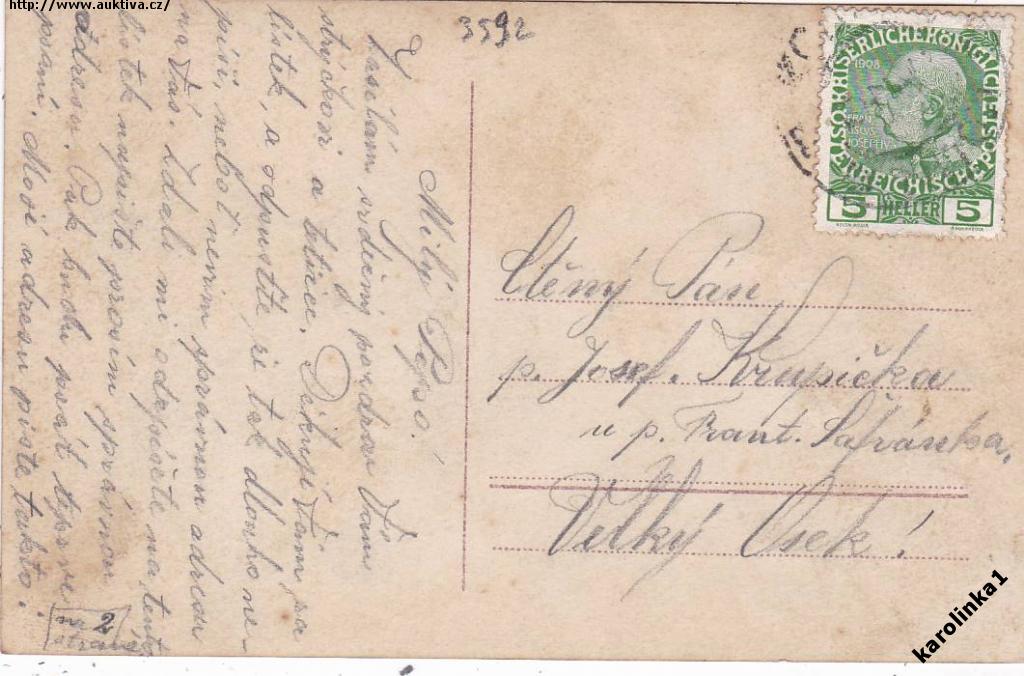 http://www.auktiva.cz/
3592
ÖSTERREICHISCHE POST
KAISERLICHE KÖNIGLICHE
1908
5 HELLER 5
Ctěný Pán
p. Josef Krupička
u p. Frant. Šafránka,
Velký Osek!
Milý Pepo!
Zasílám srdečný pozdrav Vám
strýčkovi a tetičce. Děkuji Vám za
lístek, a odpusťte, že tak dlouho ne-
píši, neboť nevím správnou adresu
na Vás. Zdali mi odepíšete na tento
lístek napište prosím správnou
adresu. Pak budu psáti
psaní. Moji adresu pište takto:
na 2
straně
karolinka1